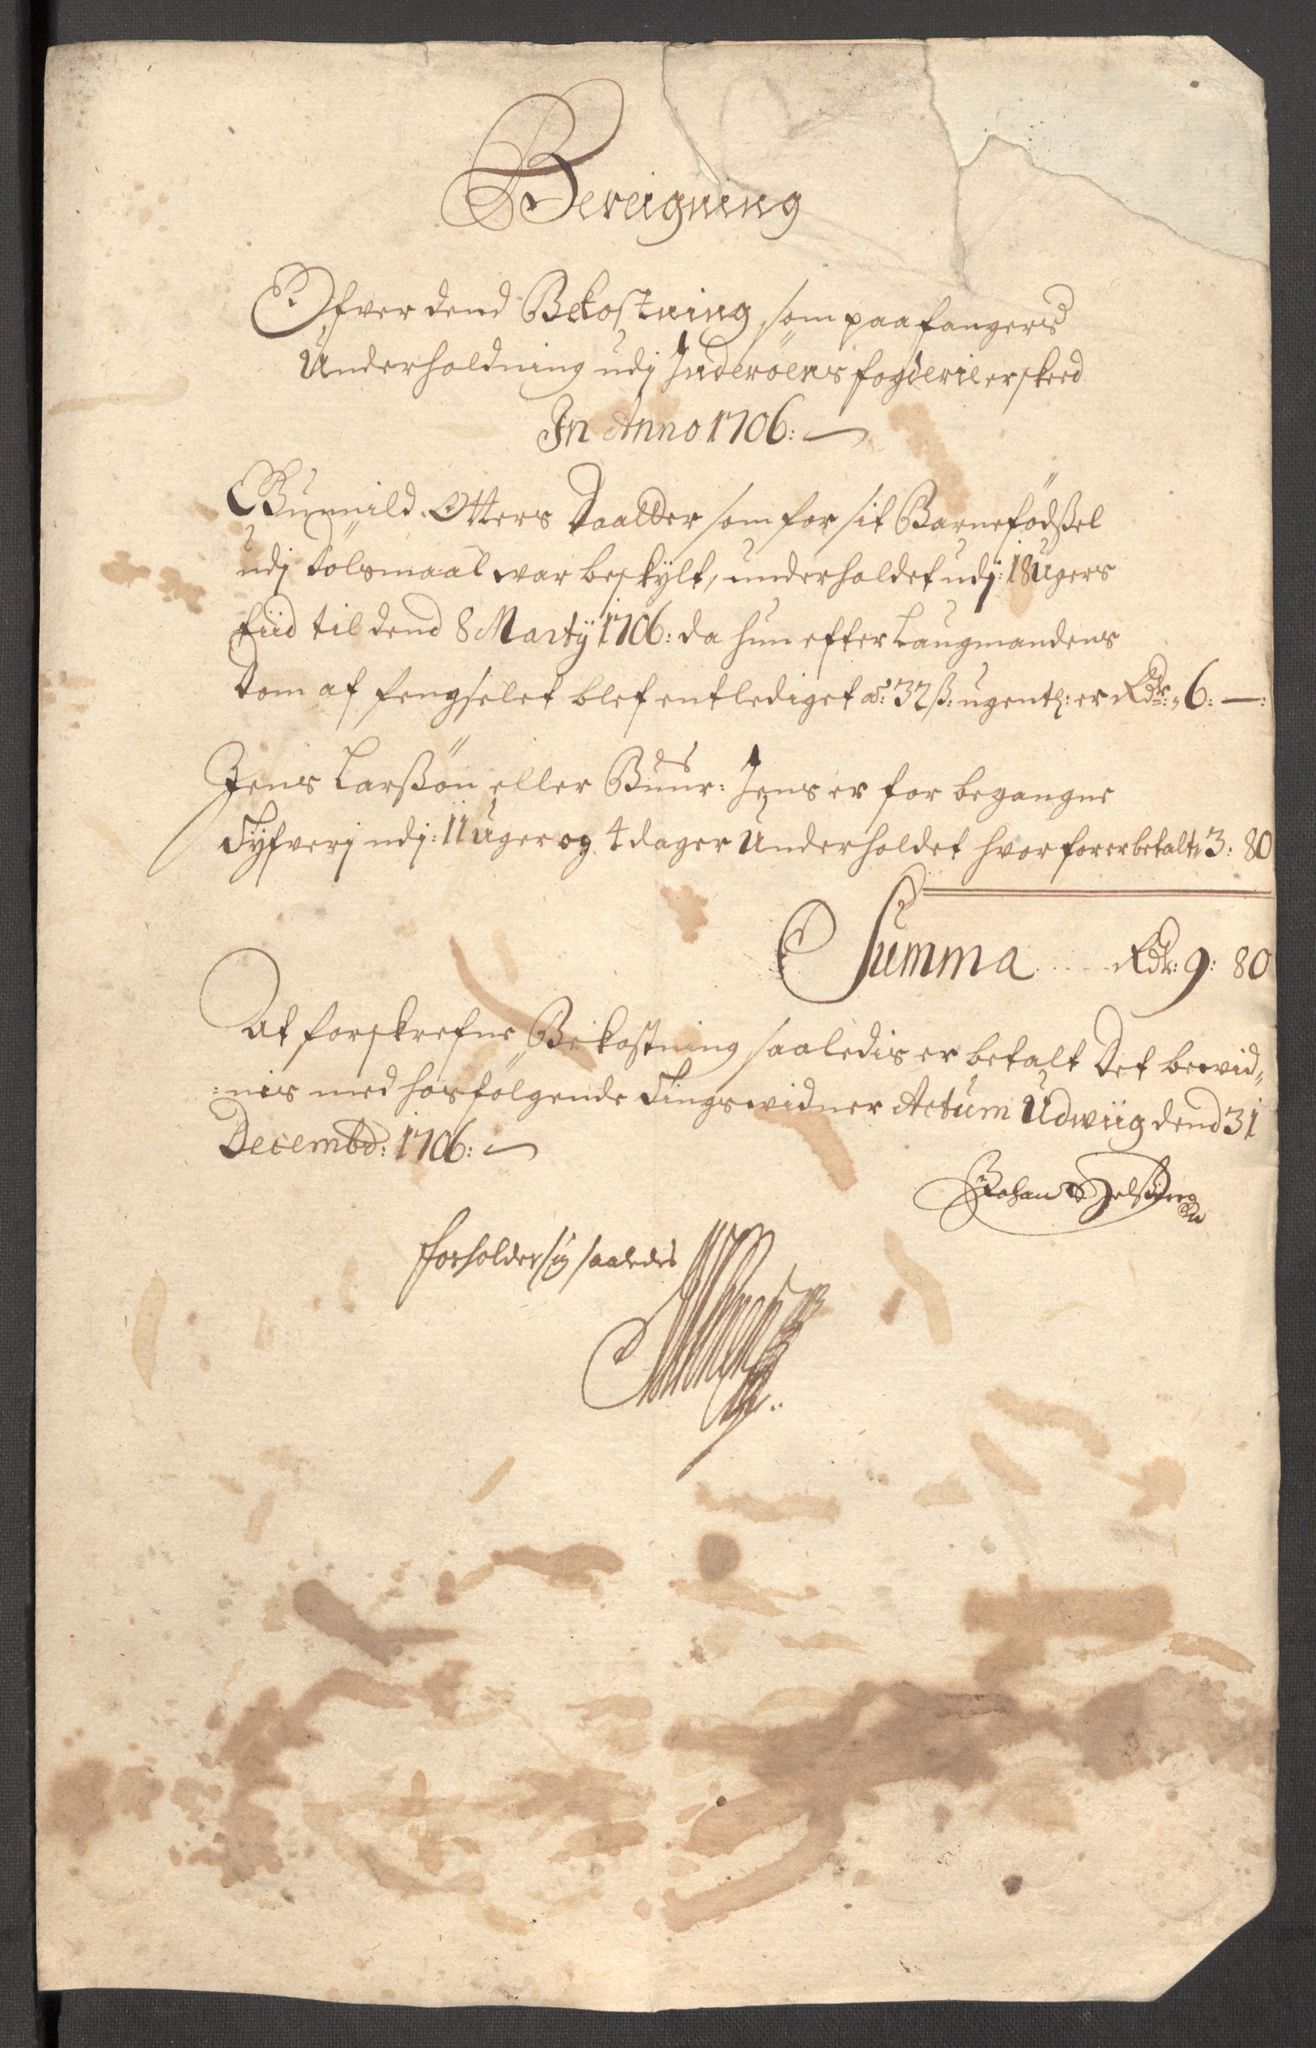 Bereigning
Ofver dend Bekostning, som paa fangers
Underholdning udj Inderöens fogderie er skeed
In Anno 1706:
Gunnild Otters Daatter som for sit Barnefödßel
udj dölsmaal war beskylt, underholdet udj: 18 Ugers
tiid til dend 8 Martÿ 1706: da hun efter Laugmandens
Dom af fengselet blef entlediget a: 32 ß: ugentl: er Rdr: 6: —:
Jens Larßön eller Buur: Jens er for begangne
Tyfverj udj: 11 Uger og 4 dager Underholdet hvorfor er betalt 3: 80
Summa Rdr: 9: 80
At forskrefne Bekostning saaledis er betalt Det bewid„
:nis med hosfölgende Tingswidner Actum Udwiig dend 31
Decembr: 1706:
Johan
forholder sig saaledes